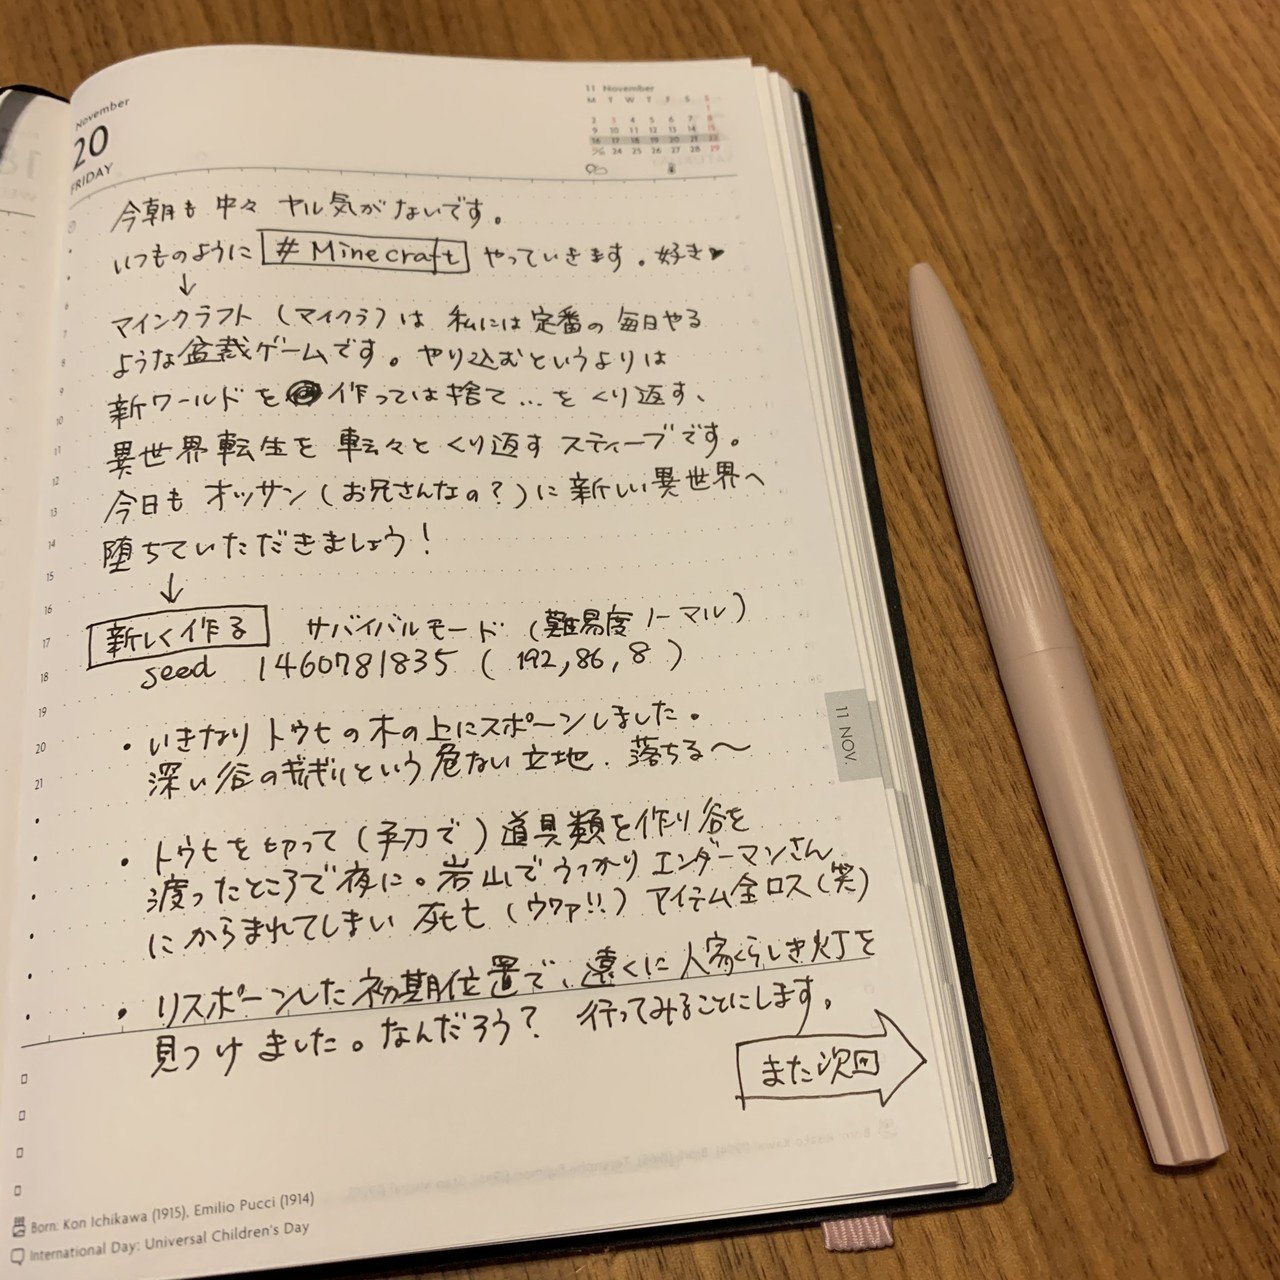 November
20
FRIDAY
11 November
M T W T F S S
1
2 3 4 5 6 7 8
9 10 11 12 13 14 15
16 17 18 19 20 21 22
24 25 26 27 28 29
今朝も 中々 ヤル気がないです。
いつものように #Minecraft やっていきます。好き♥
↓
マインクラフト (マイクラ) は 私には定番の毎日やる
ような盆栽ゲームです。やり込むというよりは
新ワールドを 作っては捨て…をくり返す、
異世界転生を 転々とくり返すスティーブです。
今日も オッサン (お兄さんなの?) に新しい異世界へ
堕ちていただきましょう!
↓
新しく作る サバイバルモード (難易度ノーマル)
seed 1460781835 (192,86,8)
・いきなりトウヒの木の上にスポーンしました。
深い谷のギリギリという危ない立地、落ちる〜
・トウヒを切って (手刀で) 道具類を作り谷を
渡ったところで夜に。岩山でうっかりエンダーマンさん
にからまれてしまい 死亡 (ウワァ!!) アイテム全ロス(笑)
・リスポーンした初期位置で、遠くに人家らしき灯を
見つけました。なんだろう? 行ってみることにします。
また次回
6
7
8
9
10
11
12
13
14
15
16
17
18
19
20
21
11 NOV.
Born: Kon Ichikawa (1915), Emilio Pucci (1914)
International Day: Universal Children's Day